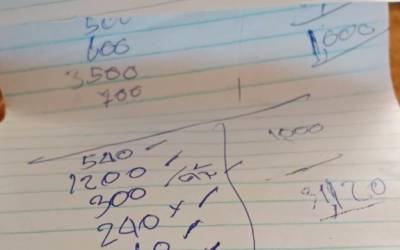 500
600
1000
3500
700
540
1000
1200
300
3120
240 x